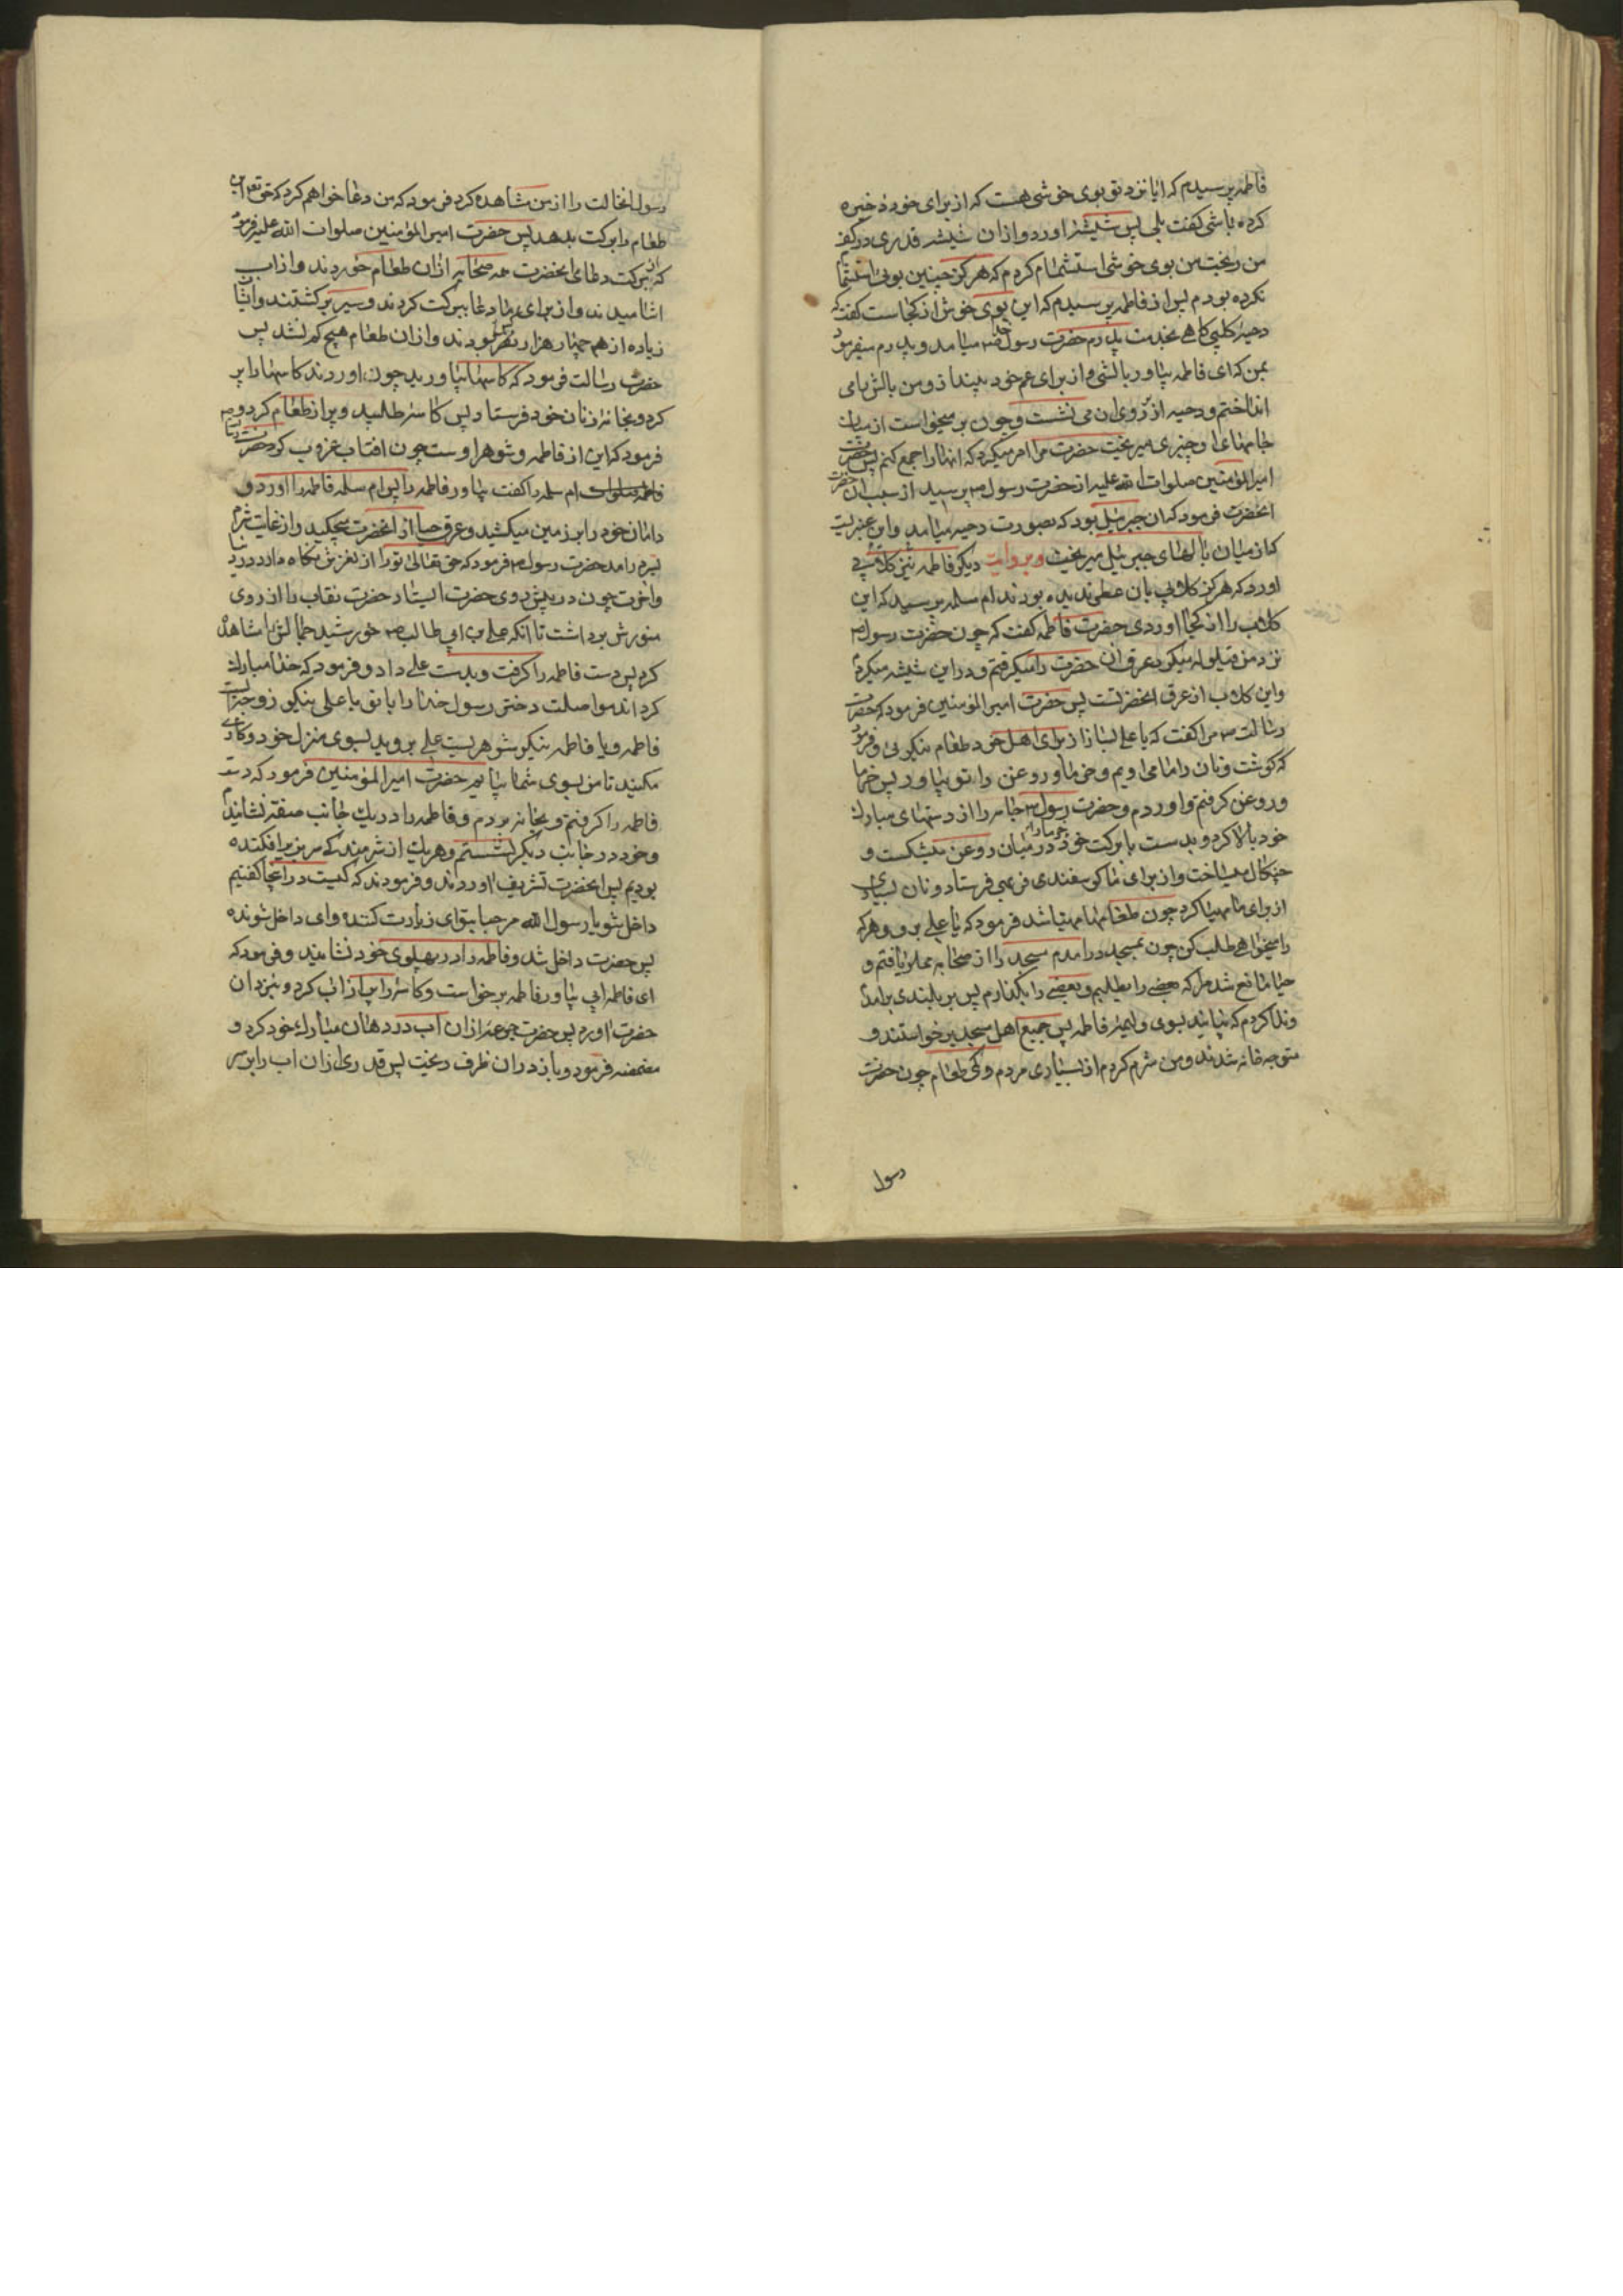 فاطمه پرسیدم که ایا نزد تو بوی خوشی هست که از برای خود ذخیره
کرده باشی گفت بلی پس شیشهٔ اورد و ازان شیشه قدری در کف
من ریخت من بوی خوشی استشمام کردم که هرگز چنین بوئی استشمام
نکرده بودم پس از فاطمه پرسیدم که این بوی خوش از کجاست گفت که
دحیهٔ کلبی گاهی بخدمت پدرم حضرت رسول خدا می امد و پدرم میفرمود
بمن که ای فاطمه بیاور بالشی و از برای عم خود بینداز و من بالش می
انداختم و دحیه از روی ان می نشست و چون بر میخواست از میان
جامهای او چیزی میریخت حضرت مرا امر میکرد که انها را جمع کنم پس حضرت
امیر المؤمنین صلوات الله علیه از حضرت رسول ص پرسید از سبب ان حضرت
انحضرت فرمود که ان جبرئیل بود که بصورت دحیه می امد و این عنبریست
که از میان بالهای جبرئیل میریخت و بروایت دیگر فاطمه نیز گلابی
اورد که هرگز گلابی بان عطر ندیده بودند ام سلمه پرسید که این
گلاب را از کجا اوردی حضرت فاطمه گفت که چون حضرت رسول ص
نزد من قیلوله میکرد عرق ان حضرت را میگرفتم و در این شیشه میکردم
و این گلاب از عرق انحضرتست پس حضرت امیر المؤمنین فرمود که حضرت
رسالت ص مرا گفت که یا علی بساز از برای اهل خود طعام نیکوئی و فرمود
که گوشت و نان را ما می اوریم و خرما و روغن را تو بیاور پس خرما
و روغن گرفتم و اوردم و حضرت رسول ص جامه را از دستهای مبارک
خود بالا کرد و بدست با برکت خود خرما را در میان روغن میشکست و
چنگال میساخت و از برای ما گوسفندی فربهی فرستاد و نان بسیاری
از برای ما مهیا کرد چون طعامها مهیا شد فرمود که یا علی برو و هر که
را میخواهی طلب کن چون بمسجد در امدم مسجد را از صحابه مملو یافتم و
حیا مانع شد مرا که بعضی را بطلبم و بعضی را بگذارم پس بر بلندی برامدم
و ندا کردم که بیایید بسوی ولیمهٔ فاطمه پس جمیع اهل مسجد برخواستند و
متوجه خانه شدند و من شرم کردم از بسیاری مردم و کمی طعام چون حضرت
رسول
رسول انحالت را از من مشاهده کرد فرمود که من دعا خواهم کرد که حق تعالی این
طعام را برکت بدهد پس حضرت امیر المؤمنین صلوات الله علیه فرمود
که از برکت دعای انحضرت همه صحابه ازان طعام خوردند و از اب
اشامیدند و از برای ما دعا ببرکت کردند و سیر برگشتند و ایشان
زیاده از هم چهار هزار نفر بودند و ازان طعام هیچ کم نشد پس
حضرت رسالت فرمود که کاسها بیاورید چون اوردند کاسها را پر
کرد و بخانهٔ زنان خود فرستاد پس کاسهٔ طلبید و پر از طعام کرد و
فرمود که این از فاطمه و شوهر اوست چون افتاب غروب کرد حضرت رسالت
ام سلمه را گفت بیاور فاطمه را پس ام سلمه فاطمه را اورد و
دامان خود را بر زمین میکشید و عرق حیا از انحضرت میچکید و از غایت شرم
بسر درامد حضرت رسول ص فرمود که حق تعالی تو را از لغزش نگاه دارد در دنیا
و اخرت چون در پیش روی حضرت ایستاد حضرت نقاب را از روی
منورش برداشت تا انکه علی بن ابی طالب ص خورشید جمالش را مشاهده
کرد پس دست فاطمه را گرفت و بدست علی داد و فرمود که خدا مبارک
گرداند مواصلت دختر رسول خدا را با تو یا علی نیکو زوجه ایست
فاطمه و یا فاطمه نیکو شوهریست علی بروید بسوی منزل خود و کاری
مکنید تا من بسوی شما بیایم حضرت امیر المؤمنین فرمود که دست
فاطمه را گرفتم و بخانه بردم و فاطمه را در یک جانب صفه نشانیدم
و خود در جانب دیگر نشستم و هر یک از شرمندگی سر بزیر افکنده
بودیم پس انحضرت تشریف اوردند و فرمودند که کیست در اینجا گفتیم
داخل شو یا رسول الله مرحبا بتو ای زیارت کننده و ای داخل شونده
پس حضرت داخل شد و فاطمه را در پهلوی خود نشانید و فرمود که
ای فاطمه ابی بیاور فاطمه برخواست و کاسه را پر از اب کرد و بنزد ان
حضرت اورد پس حضرت جرعهٔ ازان اب در دهان مبارک خود کرد و
مضمضه فرمود و باز دران ظرف ریخت پس قدری ازان اب را بر سر